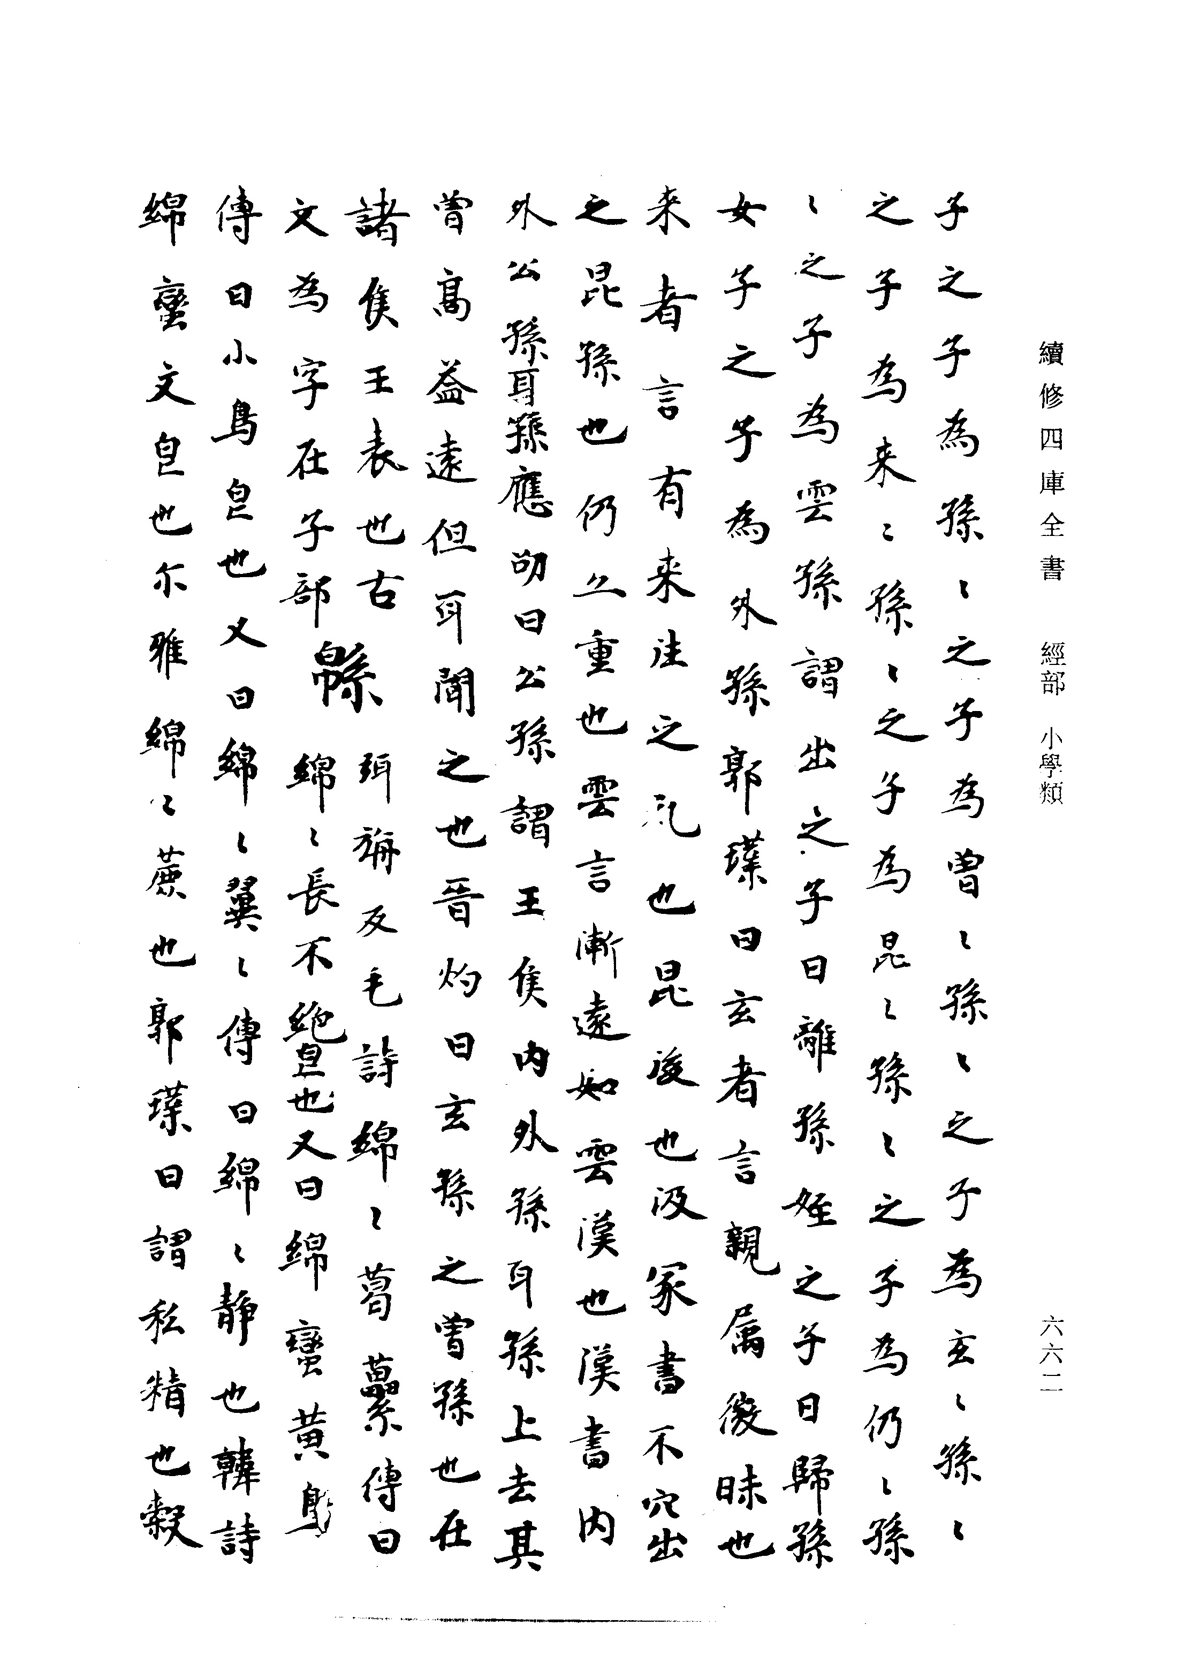 續修四庫全書 經部 小學類 六六二
子之子為孫〻之子為曾〻孫〻之子為玄〻孫〻
之子為来〻孫〻之子為昆〻孫〻之子為仍〻孫
〻之子為雲孫謂出之子曰離孫姪之子曰歸孫
女子之子為外孫郭璞曰玄者言親属微昧也
来者言有来往之礼也昆後也汲冢書不穴出
之昆孫也仍亦重也雲言漸遠如雲漢也漢書内
外公孫耳孫應劭曰公孫謂王侯内外孫耳孫上去其
曾高益遠但耳聞之也晋灼曰玄孫之曾孫也在
諸侯王表也古
文為字在子部
緜 弭褊反毛詩綿〻葛藟傳曰
綿〻長不絶皃也又曰綿蠻黄鳥
傳曰小鳥皃也又曰綿〻翼〻傳曰綿〻静也韓詩
綿蠻文皃也尒雅綿〻穮也郭璞曰謂私精也穀